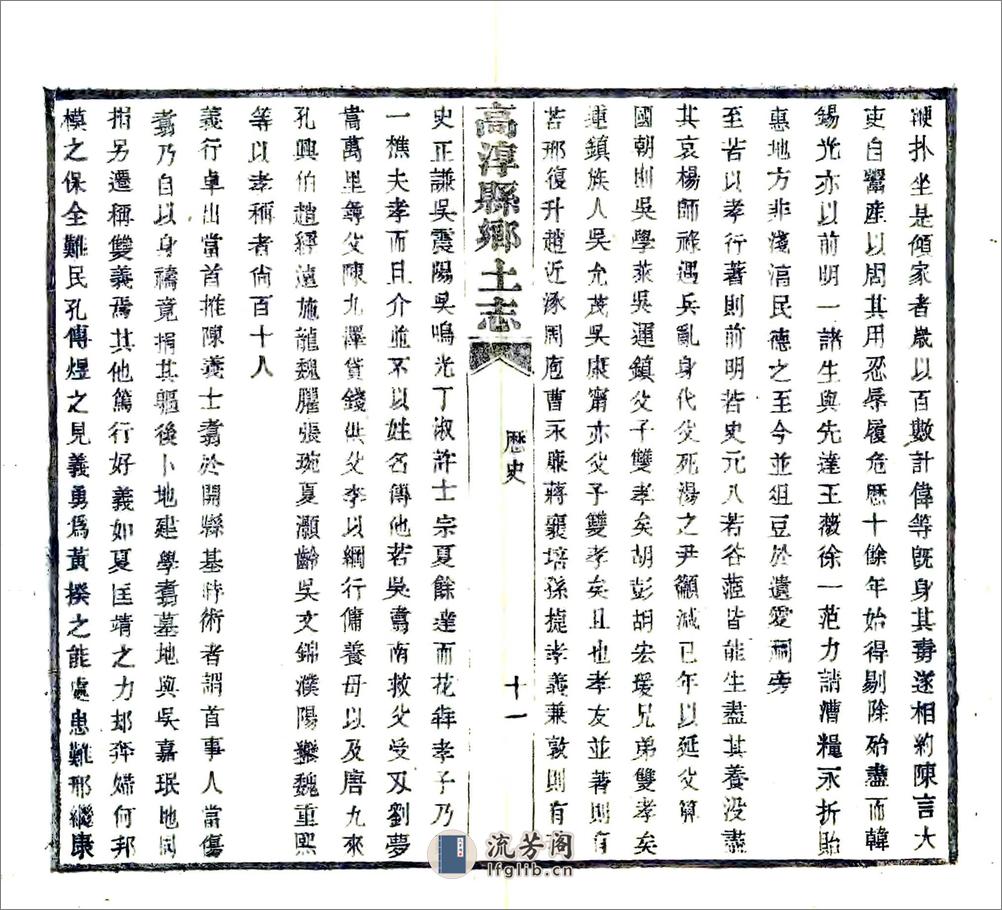 鞭扑坐是傾家者歲以百數計偉等旣身其毒遂相約陳言大
吏自鬻產以周其用忍辱履危歷十餘年始得剔除殆盡而韓
錫光亦以前明一諸生與先達王薇徐一范力請漕糧永折貽
惠地方非淺淯民德之至今並俎豆於遺愛祠旁
至若以孝行著則前明若史元八若谷蒞皆能生盡其養没盡
其哀楊師祿遇兵亂身代父死湯之尹籲減已年以延父算
國朝則吳學萊吳運鎮父子雙孝矣胡彭胡宏瑗兄弟雙孝矣
運鎮族人吳允茂吳康甯亦父子雙孝矣且也孝友並著則有
苦邢復升趙近涿周庖曹永驤蔣襄培孫振孝義兼敦則有
高淳縣鄉土志
歷史
十一
史正謙吳震陽吳鳴光丁淑許士宗夏餘達而花犇孝子乃
一樵夫孝而且介並不以姓名傳他若吳翥南救父受刄劉夢
嵩萬里尋父陳九澤貸錢供父李以綱行傭養母以及唐九來
孔興伯趙繹遠施龍魏臞張琬夏灝齡吳文錦濮陽魏重熙
等以孝稱者尙百十人
義行卓出當首推陳義士翥於開縣基時術者謂首事人當傷
翥乃自以身禱竟捐其軀後卜地建學翥墓地與吳嘉珉地同
捐另遷稱雙義焉其他篤行好義如夏匡靖之力却奔婦何邦
模之保全難民孔傳煜之見義勇爲黃揆之能處患難邢繼康
流芳阁
lfglib.cn